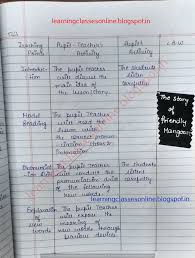 learningclassesonline.blogspot.in
Teaching Points
Pupil-Teacher's Activity
Pupil's Activity
C.B.W
Introduction
The Pupil teacher will discuss the main idea of the lesson/story.
The students listen carefully
Model Reading
The pupil Teacher will read the lesson with the correct pronunciation
Pronunciation
The Pupil Teacher will conduct the pronunciation drill of the following new words.
The students listen carefully
Explanation of new words
The Pupil Teacher will expose the meaning of new words through various devices
The story
of
friendly
Mangoose
learningclassesonline.blogspot.in